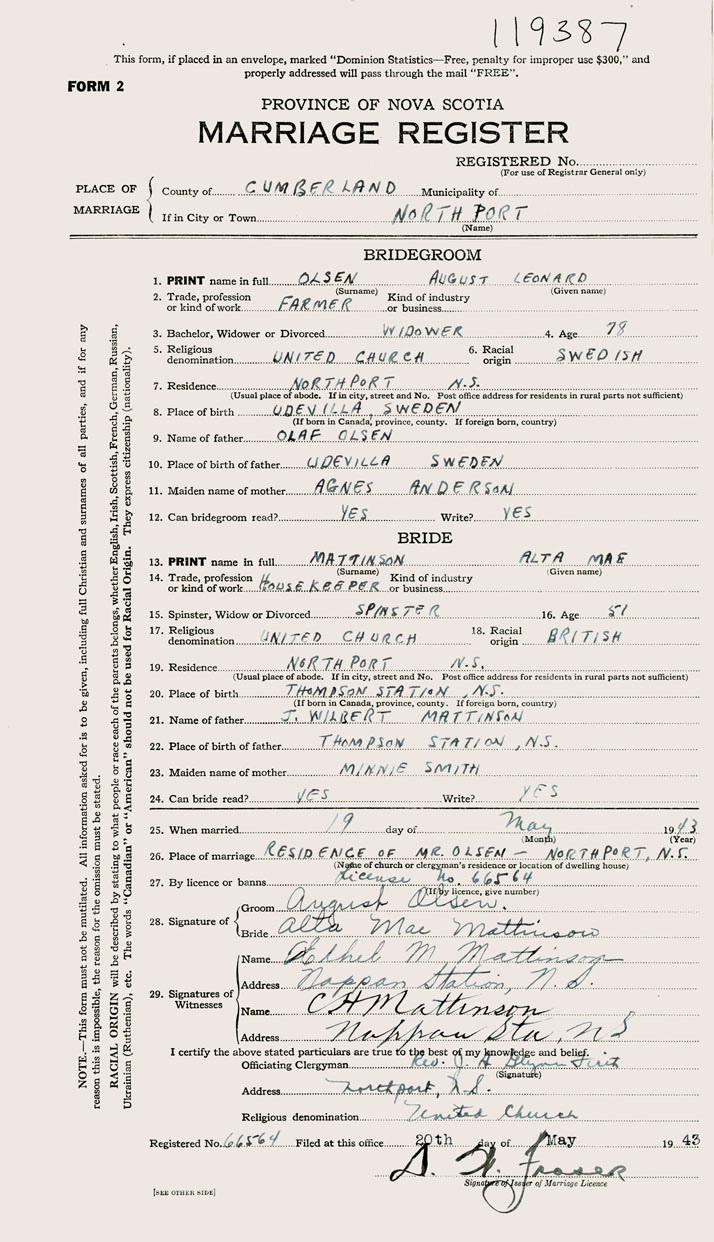 119387
This form, if placed in an envelope, marked "Dominion Statistics—Free, penalty for improper use $300," and
properly addressed will pass through the mail "FREE".
FORM 2
PROVINCE OF NOVA SCOTIA
MARRIAGE REGISTER
REGISTERED No.
(For use of Registrar General only)
PLACE OF MARRIAGE
County of CUMBERLAND Municipality of
If in City or Town NORTH PORT
(Name)
BRIDEGROOM
1. PRINT name in full OLSEN AUGUST LEONARD
(Surname) (Given name)
2. Trade, profession or kind of work FARMER Kind of industry or business
3. Bachelor, Widower or Divorced WIDOWER 4. Age 78
5. Religious denomination UNITED CHURCH 6. Racial origin SWEDISH
7. Residence NORTHPORT N.S.
(Usual place of abode. If in city, street and No. Post office address for residents in rural parts not sufficient)
8. Place of birth UDEVILLA, SWEDEN
(If born in Canada, province, county. If foreign born, country)
9. Name of father OLAF OLSEN
10. Place of birth of father UDEVILLA SWEDEN
11. Maiden name of mother AGNES ANDERSON
12. Can bridegroom read? YES Write? YES
BRIDE
13. PRINT name in full MATTINSON ALTA MAE
(Surname) (Given name)
14. Trade, profession or kind of work HOUSEKEEPER Kind of industry or business
15. Spinster, Widow or Divorced SPINSTER 16. Age 51
17. Religious denomination UNITED CHURCH 18. Racial origin BRITISH
19. Residence NORTH PORT N.S.
(Usual place of abode. If in city, street and No. Post office address for residents in rural parts not sufficient)
20. Place of birth THOMPSON STATION, N.S.
(If born in Canada, province, county. If foreign born, country)
21. Name of father J. WILBERT MATTINSON
22. Place of birth of father THOMPSON STATION, N.S.
23. Maiden name of mother MINNIE SMITH
24. Can bride read? YES Write? YES
25. When married 19 day of May 1943
(Month) (Year)
26. Place of marriage RESIDENCE OF MR. OLSEN — NORTHPORT, N.S.
(Name of church or clergyman's residence or location of dwelling house)
27. By licence or banns License No. 66564
(If by licence, give number)
28. Signature of
Groom August Olsen.
Bride Alta Mae Mattinson
29. Signatures of Witnesses
Name Ethel M Mattinson
Address Nappan Station, N.S.
Name C H Mattinson
Address Nappan Sta, NS
I certify the above stated particulars are true to the best of my knowledge and belief.
Officiating Clergyman Rev. J. A.
(Signature)
Address Northport, N.S.
Religious denomination United Church
Registered No. 66564 Filed at this office 20th day of May 1943
D. W. Fraser
Signature of Issuer of Marriage Licence
[SEE OTHER SIDE]
NOTE.—This form must not be mutilated. All information asked for is to be given, including full Christian and surnames of all parties, and if for any
reason this is impossible, the reason for the omission must be stated.
RACIAL ORIGIN will be described by stating to what people or race each of the parents belongs, whether English, Irish, Scottish, French, German, Russian,
Ukrainian (Ruthenian), etc. The words "Canadian" or "American" should not be used for Racial Origin. They express citizenship (nationality).